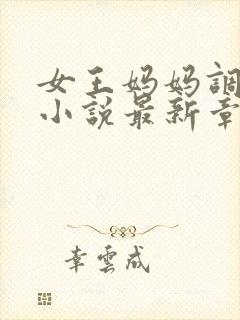 女王妈妈調
小説最新章
幸雲成